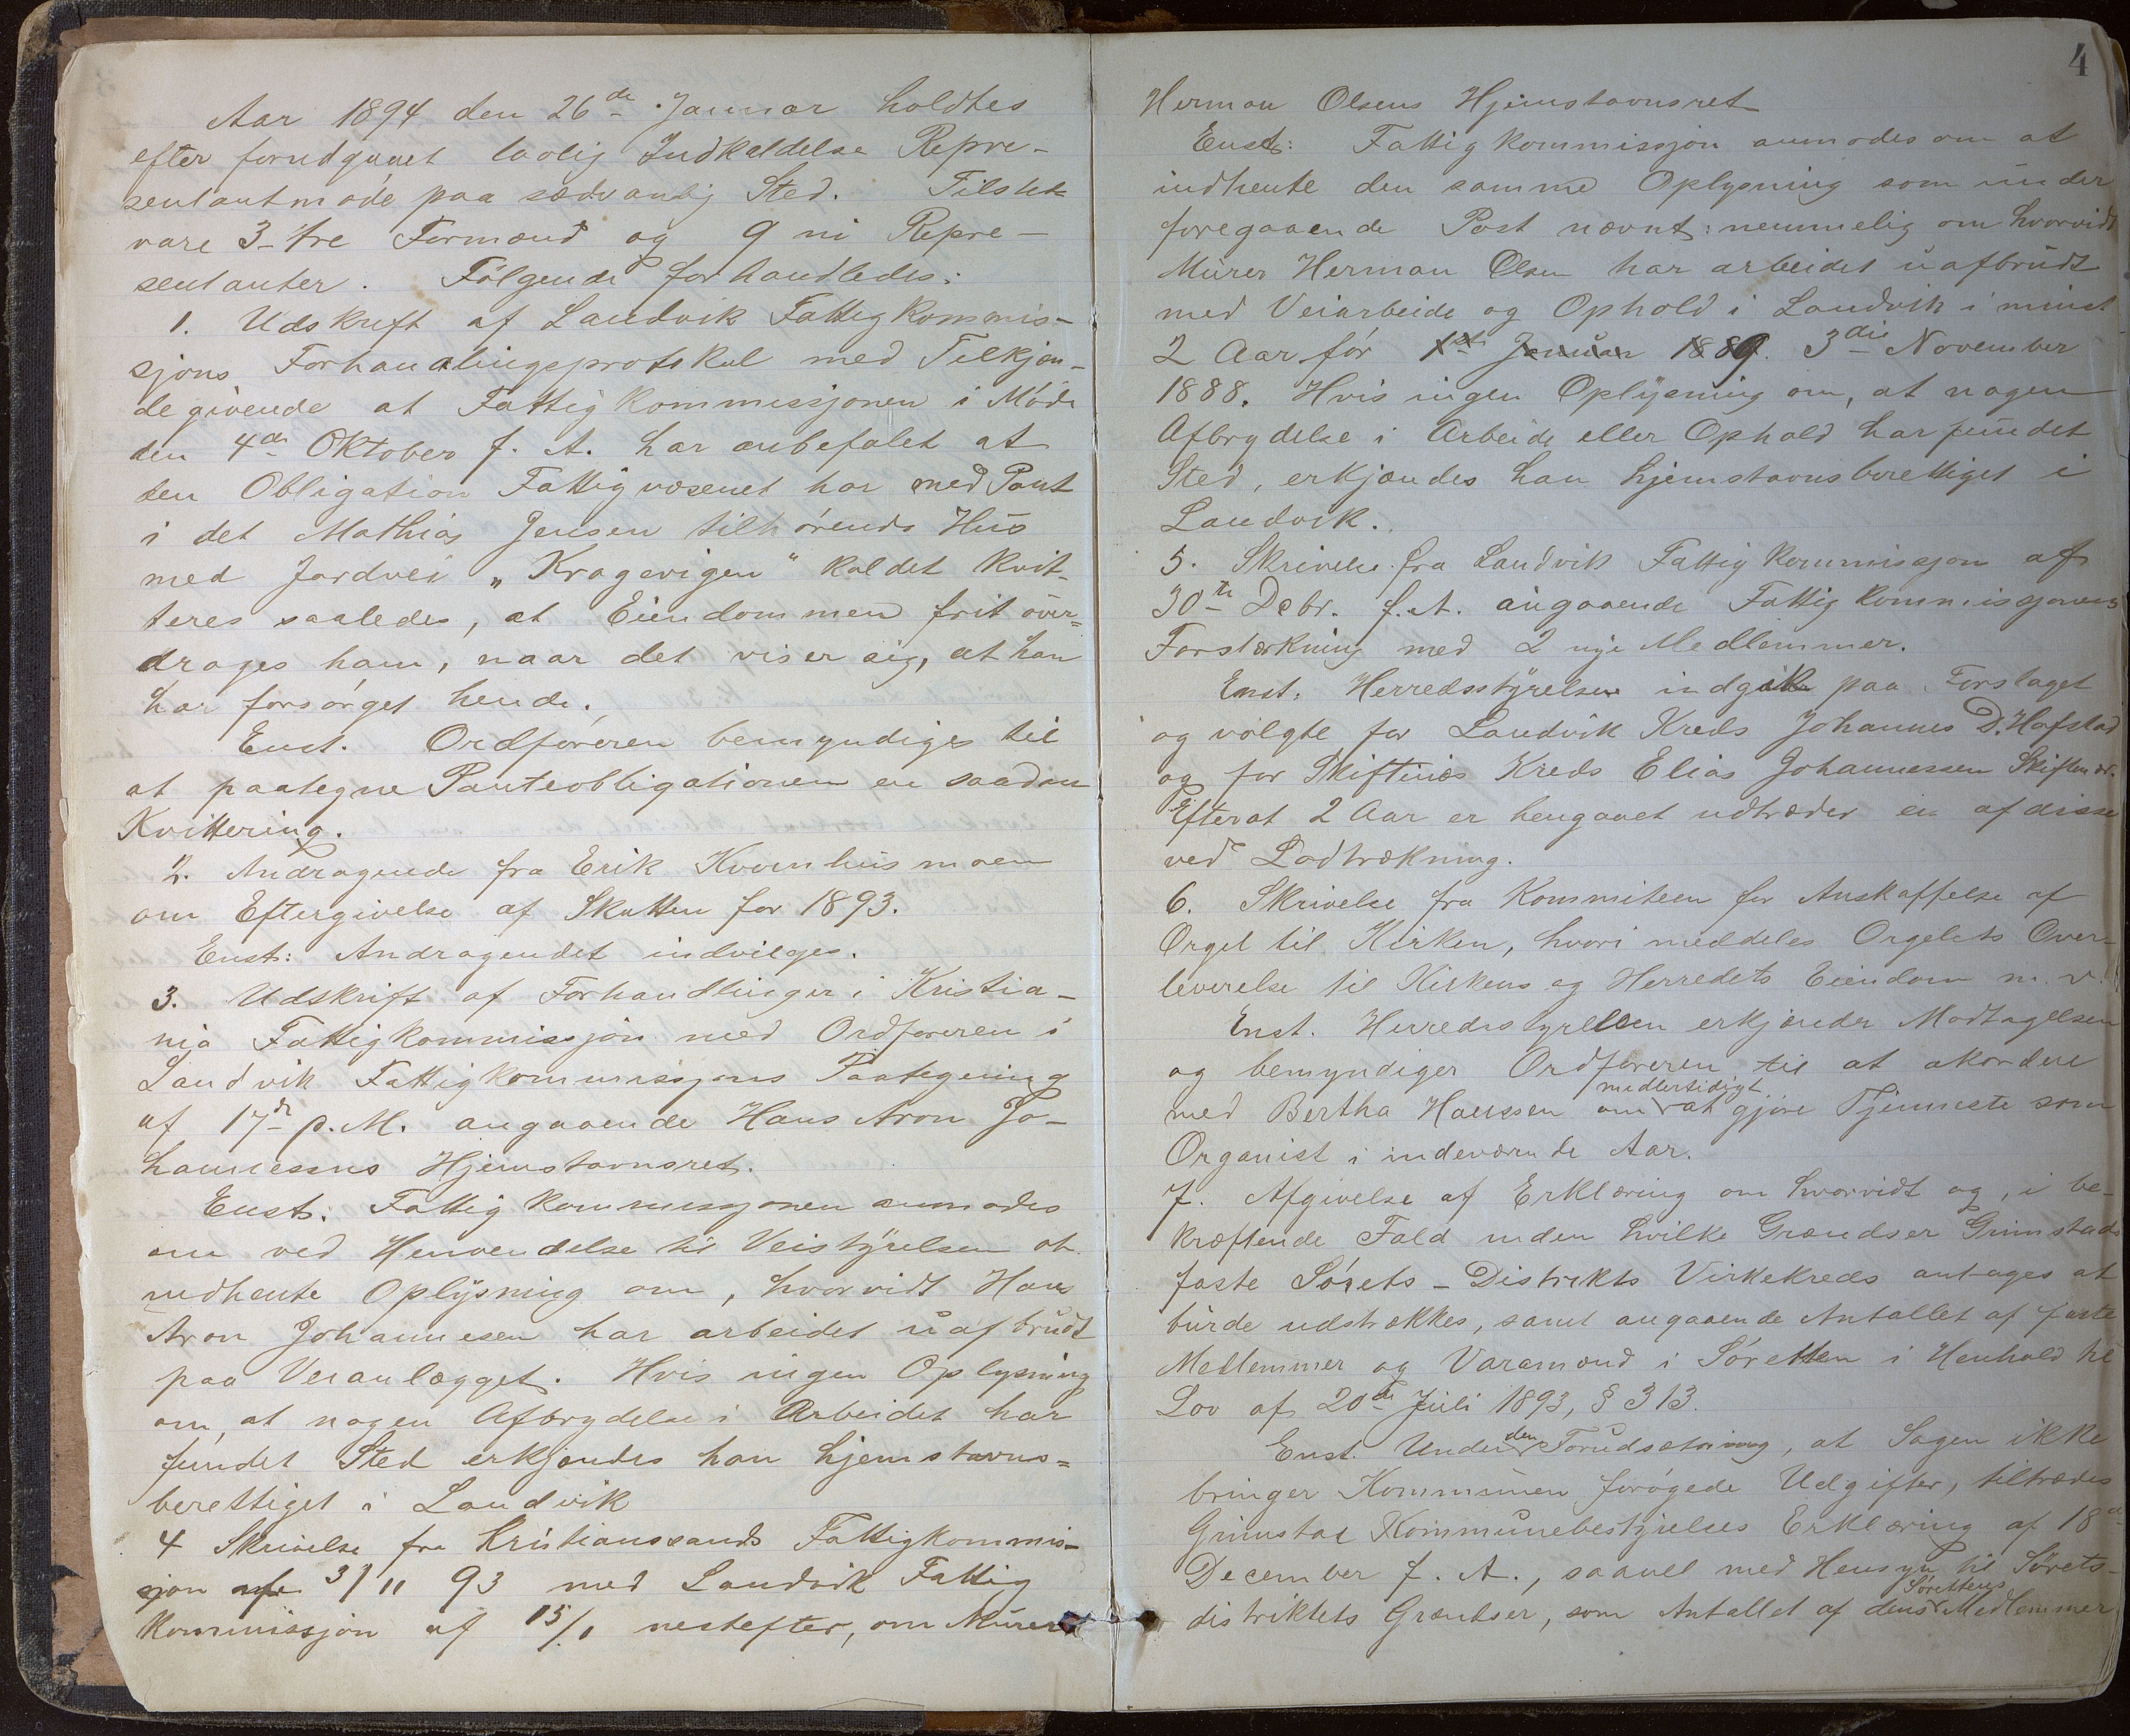 Aar 1894 den 26de Januar holdtes
efter forudgaaet lovlig Indkaldelse Repre-
sentantmøde paa sædvanlig Sted. Tilstede
vare 3 - tre Formænd og 9 ni Repre-
sentanter. Følgende forhandledes:
1. Udskrift af Landvik Fattigkommis-
sjons Forhandlingsprotokol med Tilkjen-
degivende at Fattigkommissjonen i Møde
den 4de Oktober f. A. har anbefalet at
den Obligation Fattigvæsenet har med Pant
i det Mathias Jensen tilhørende Hus
med Jordvei „Kragevigen" kaldet kvit-
teres saaledes, at Eiendommen frit over-
drages ham, naar det viser sig, at han
har forsørget hende.
Enst. Ordføreren bemyndiges til
at paategne Panteobligationen en saadan
Kvittering.
2. Andragende fra Erik Kvernhusmoen
om Eftergivelse af Skatten for 1893.
Enst: Andragendet indvilges.
3. Udskrift af Forhandlinger i Kristia-
nia Fattigkommissjon med Ordføreren i
Landvik Fattigkommissjons Paategning
af 17de p. M. angaaende Hans Aron Jo-
hannessens Hjemstavnsret.
Enst: Fattigkommissjonen anmodes
om ved Henvendelse til Veistyrelsen at
indhente Oplysning om, hvorvidt Hans
Aron Johannesen har arbeidet uafbrudt
paa Veianlægget. Hvis ingen Oplysning
om, at nogen Afbrydelse i Arbeidet har
fundet Sted erkjendes han hjemstavns-
berettiget i Landvik
4 Skrivelse fra Kristianssands Fattigkommis-
sjon af 3/11 93 med Landvik Fattig
kommissjon af 15/1 nestefter, om Murer
4
Herman Olsens Hjemstavnsret
Enst: Fattigkommissjon anmodes om at
indhente den samme Oplysning som under
foregaaende Post nævnt: nemmelig om hvorvidt
Murer Herman Olsen har arbeidet uafbrudt
med Veiarbeide og Ophold i Landvik i minst
2 Aar før 1st Januar 1889. 3die November
1888. Hvis ingen Oplysning om, at nogen
Afbrydelse i Arbeide eller Ophold har fundet
Sted, erkjendes han hjemstavnsberettiget i
Landvik.
5. Skrivelse fra Landvik Fattigkommissjon af
30te Debr. f. A. angaaende Fattigkommissjonens
Forstærkning med 2 nye Medlemmer.
Enst. Herredsstyrelsen indgik paa Forslaget
og valgte for Landvik Kreds Johannes D. Hafstad
og for Skiftenes Kreds Elias Johannessen Skiftenæs.
Efterat 2 Aar er hengaaet udtræder en af disse
ved Lodtrækning.
6. Skrivelse fra Kommiteen for Anskaffelse af
Orgel til Kirken, hvori meddeles Orgelets Over-
leverelse til Kirkens og Herredets Eiendom m. v.
Enst. Herredsstyrelsen erkjender Modtagelsen
og bemyndiger Ordføreren til at akordere
med Bertha Hanssen om midlertidigt at gjøre Tjenneste som
Organist i indeværende Aar.
7. Afgivelse af Erklæring om hvorvidt og, i be-
kræftende Fald inden hvilke Grændser Grimstads
faste Sørets-Distrikts Virkekreds antages at
burde udstrækkes, samt angaaende Antallet af faste
Medlemmer og Varamænd i Søretten i Henhold til
Lov af 20de Juli 1893, § 313.
Enst. Under den Forudsætning, at Sagen ikke
bringer Kommunen forøgede Udgifter, tiltrædes
Grimstad Kommunebestyrelses Erklæring af 18de
December f. A., saavel med Hensyn til Sørets-
distriktets Grændser, som Antallet af dens Sørettens Medlemmer